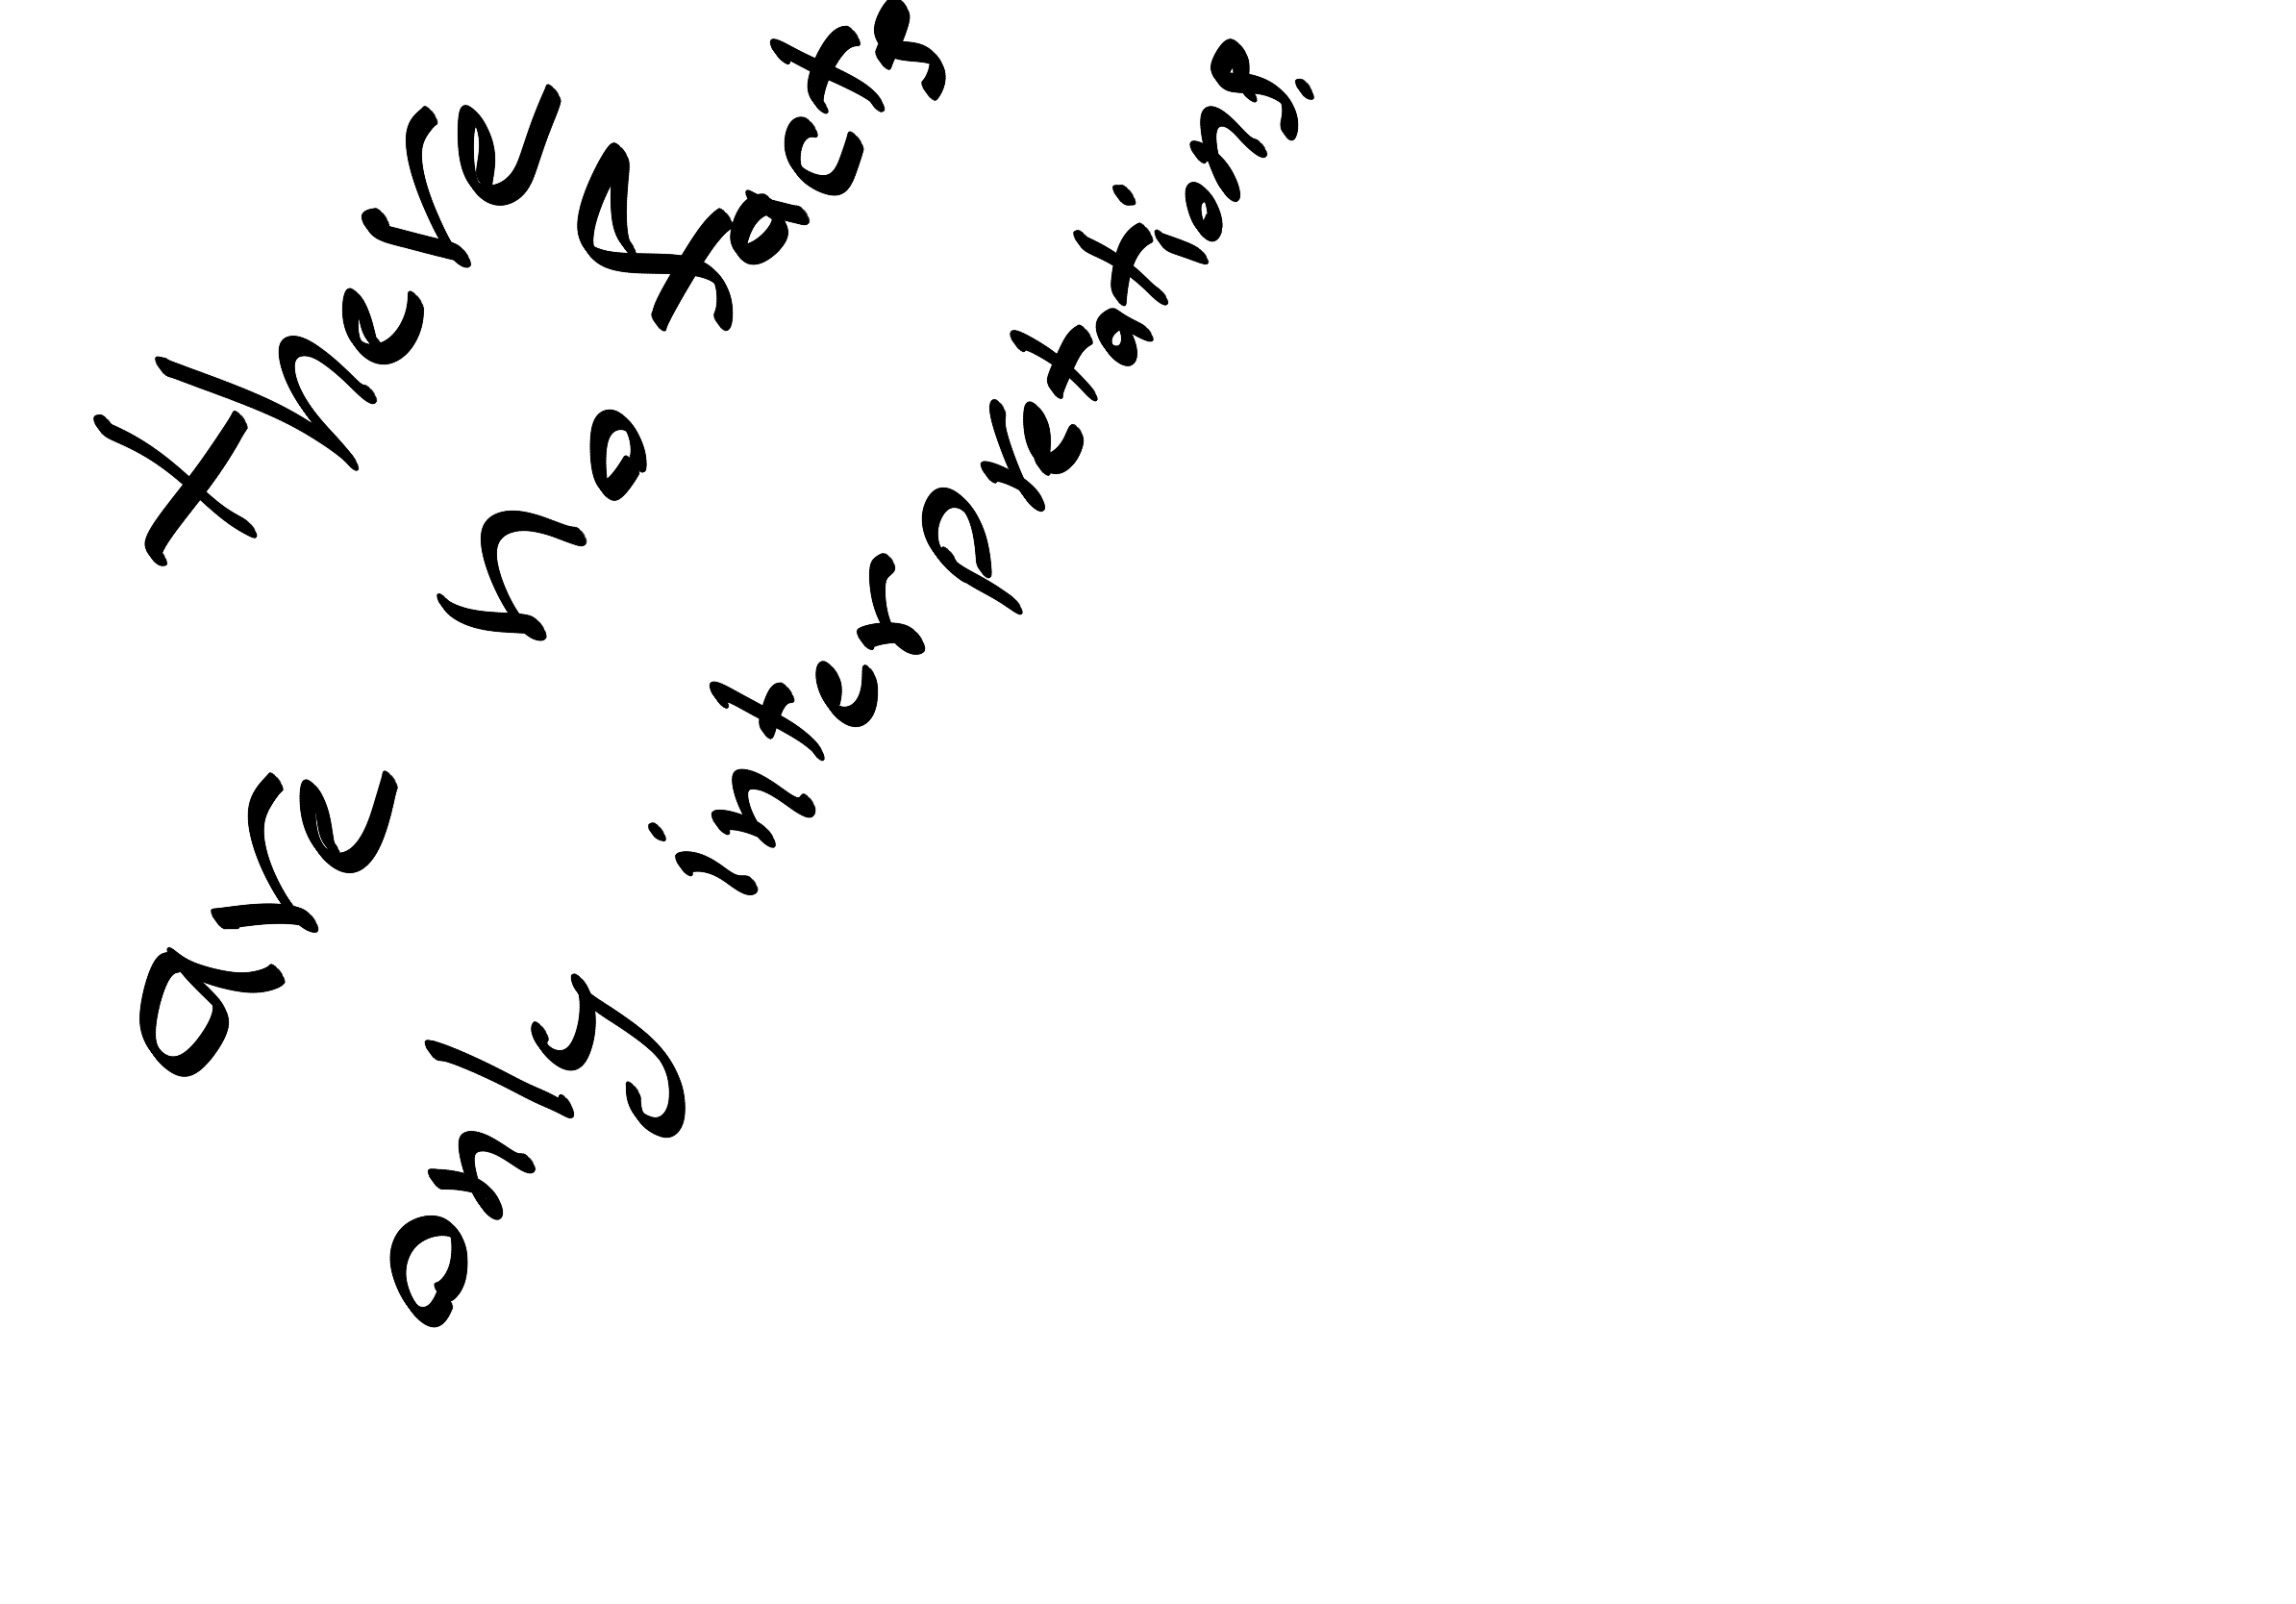 there
are no facts
only interpretations.